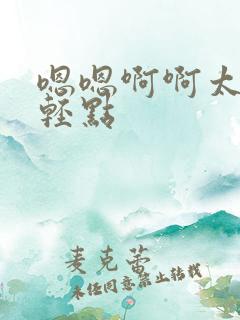 嗯嗯啊啊太
轻點
麦克蕾
未经同意禁止转载